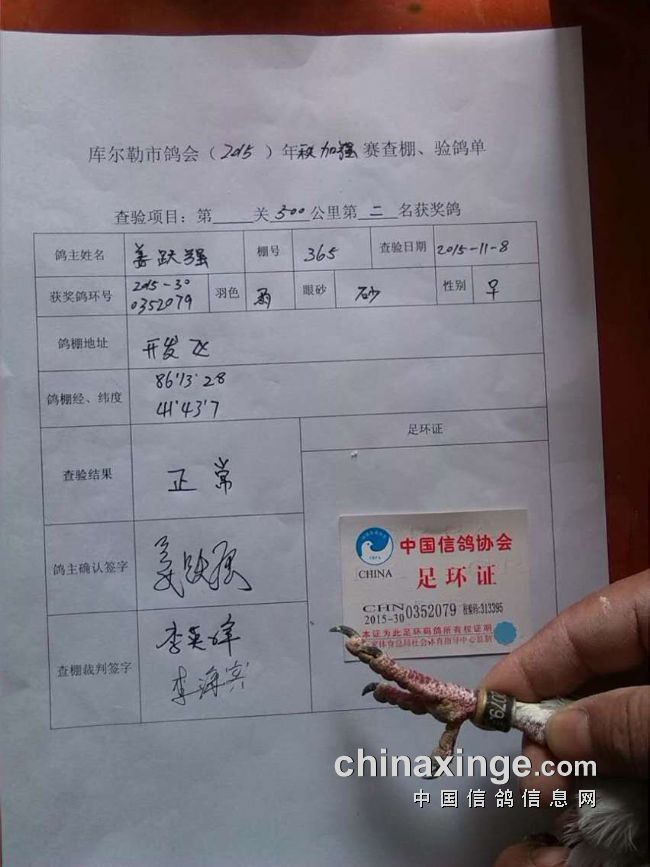 库尔勒市鸽会（2015）年秋加强赛查棚、验鸽单
查验项目：第 关 500 公里第 二 名获奖鸽
鸽主姓名 姜跃强 棚号 365 查验日期 2015-11-8
获奖鸽环号 2015-30 0352079 羽色 雨 眼砂 砂 性别 ♀
鸽棚地址 开发区
鸽棚经、纬度 86°13′28
41°43′7
足环证
查验结果 正常
鸽主确认签字 姜跃强
查棚裁判签字 李英峰
李海宾
中国信鸽协会
CHINA
足环证
CHN
2015-30 0352079 校验码:313395
本证为此足环码鸽所有权证明
国家体育总局社会体育指导中心监制
079
chinaxinge.com
中国信鸽信息网